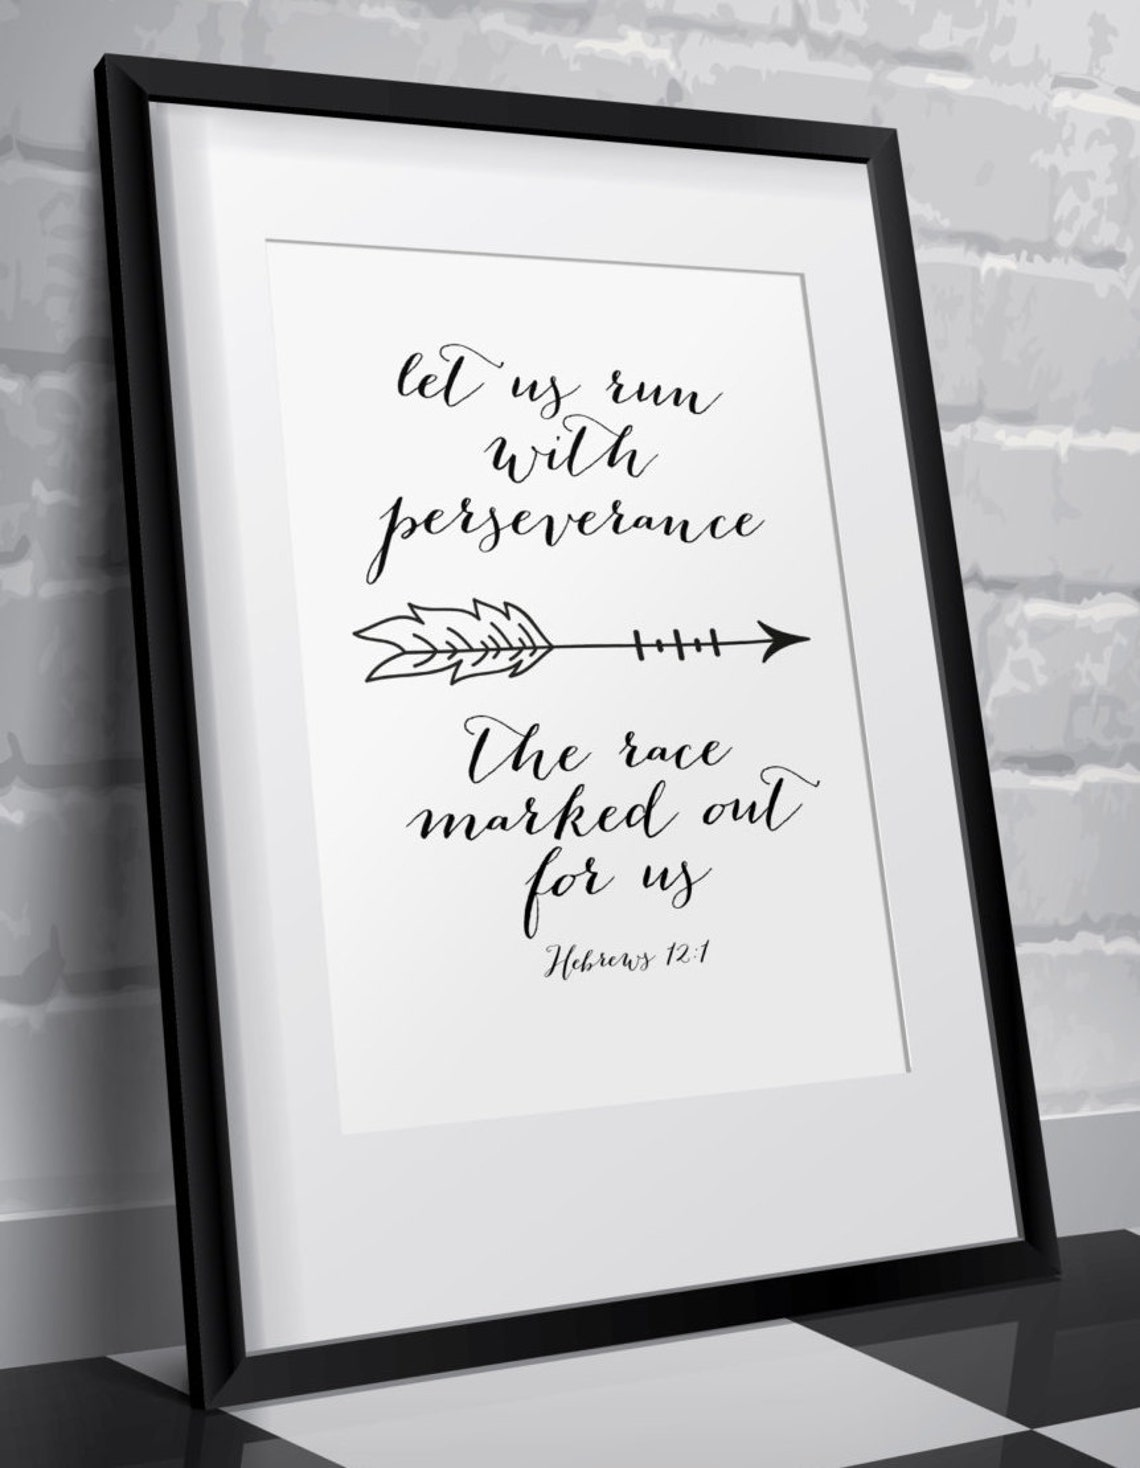 let us run
with
perseverance
the race
marked out
for us
Hebrews 12:1